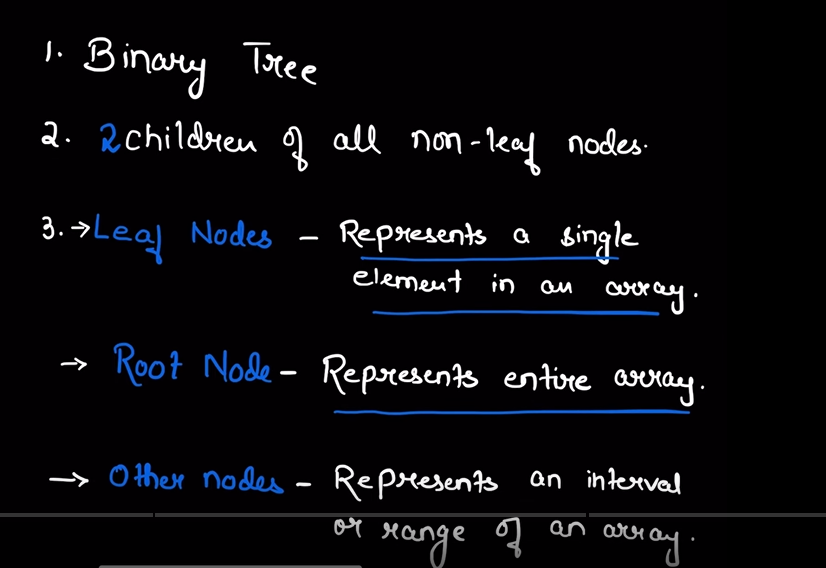 1. Binary Tree
2. 2 children of all non-leaf nodes.
3. → Leaf Nodes – Represents a single
element in an array.
→ Root Node – Represents entire array.
→ Other nodes – Represents an interval
or range of an array.